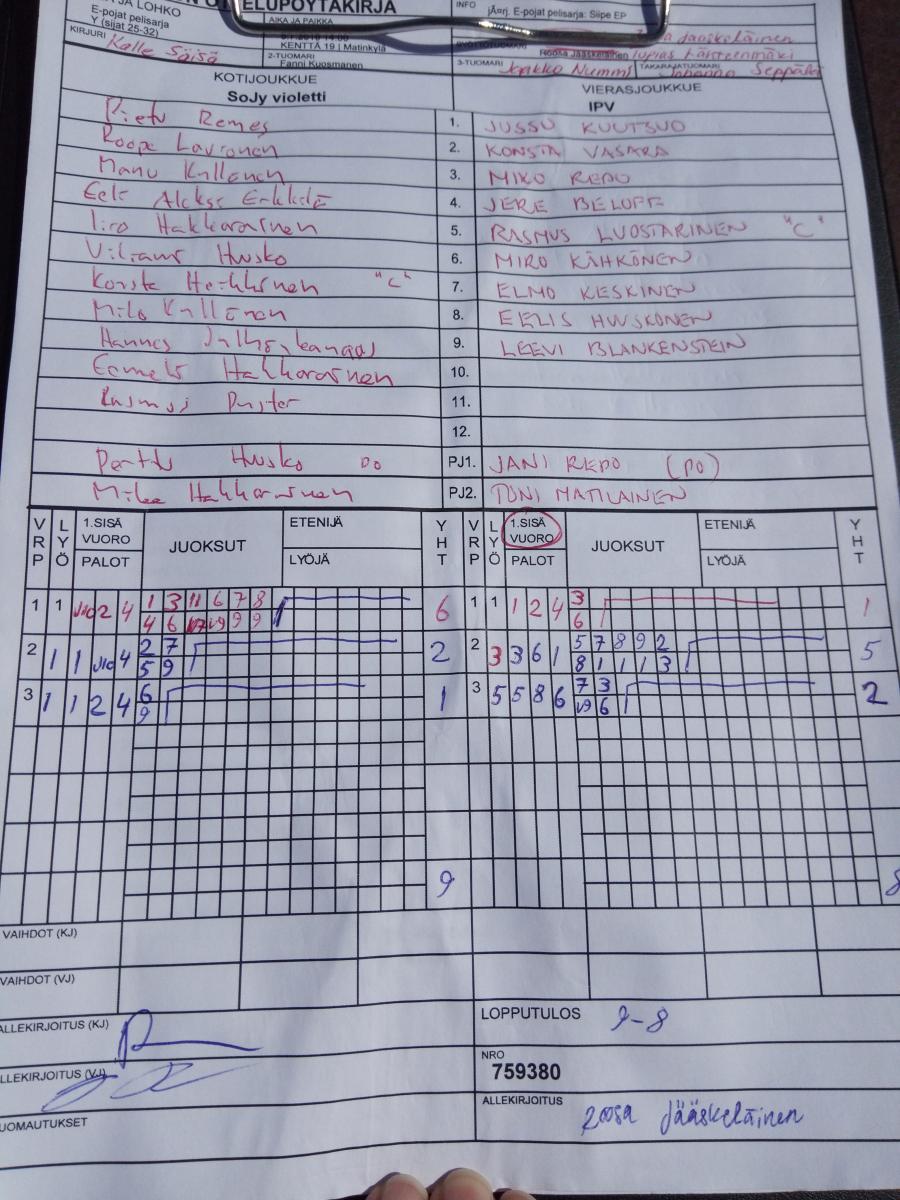 ELUPÖYTÄKIRJA
JA LOHKO
E-pojat pelisarja
Y (sijat 25-32)
AIKA JA PAIKKA
KENTTÄ 19 | Matinkylä
INFO
E-pojat pelisarja: Siipe EP
Jääskeläinen
KIRJURI Kalle Säisä
2-TUOMARI
Fanni Kuosmanen
3-TUOMARI Jarkko Nummi
TAKARAJATUOMARI Johanna Seppälä
KOTIJOUKKUE
SoJy violetti
VIERASJOUKKUE
IPV
Pietu Remes 1. JUSSU KUUTSUO
Roope Lavronen 2. KONSTA VASARA
Manu Kyllönen 3. MIKO REPO
4. JERE BELOFF
Iiro Hakkarainen 5. RASMUS LUOSTARINEN "C"
Huusko 6. MIRO KÄHKÖNEN
Konsta Heikkinen "C" 7. ELMO KESKINEN
Milo Kyllönen 8. EELIS HUUSKONEN
Hannes 9. LEEVI BLANKENSTEIN
Hakkarainen 10.
11.
12.
Perttu Huusko PO PJ1. JANI REPO (PO)
Mika Hakkarainen PJ2. TONI MATILAINEN
VRP LYÖ 1.SISÄ VUORO PALOT JUOKSUT ETENIJÄ LYÖJÄ YHT VRP LYÖ 1.SISÄ VUORO PALOT JUOKSUT ETENIJÄ LYÖJÄ YHT
1 1 2 4 1 3 11 6 7 8 6 1 1 1 2 4 3 1
4 6 9 9 6
2 1 1 4 2 7 2 2 3 3 6 1 5 7 8 9 2 5
5 9 8 1 1 1 3
3 1 1 2 4 6 1 3 5 5 8 6 7 3 2
9 6
9 8
VAIHDOT (KJ)
VAIHDOT (VJ)
ALLEKIRJOITUS (KJ)
LOPPUTULOS 9-8
ALLEKIRJOITUS (VJ)
NRO
759380
UOMAUTUKSET
ALLEKIRJOITUS Roosa Jääskeläinen